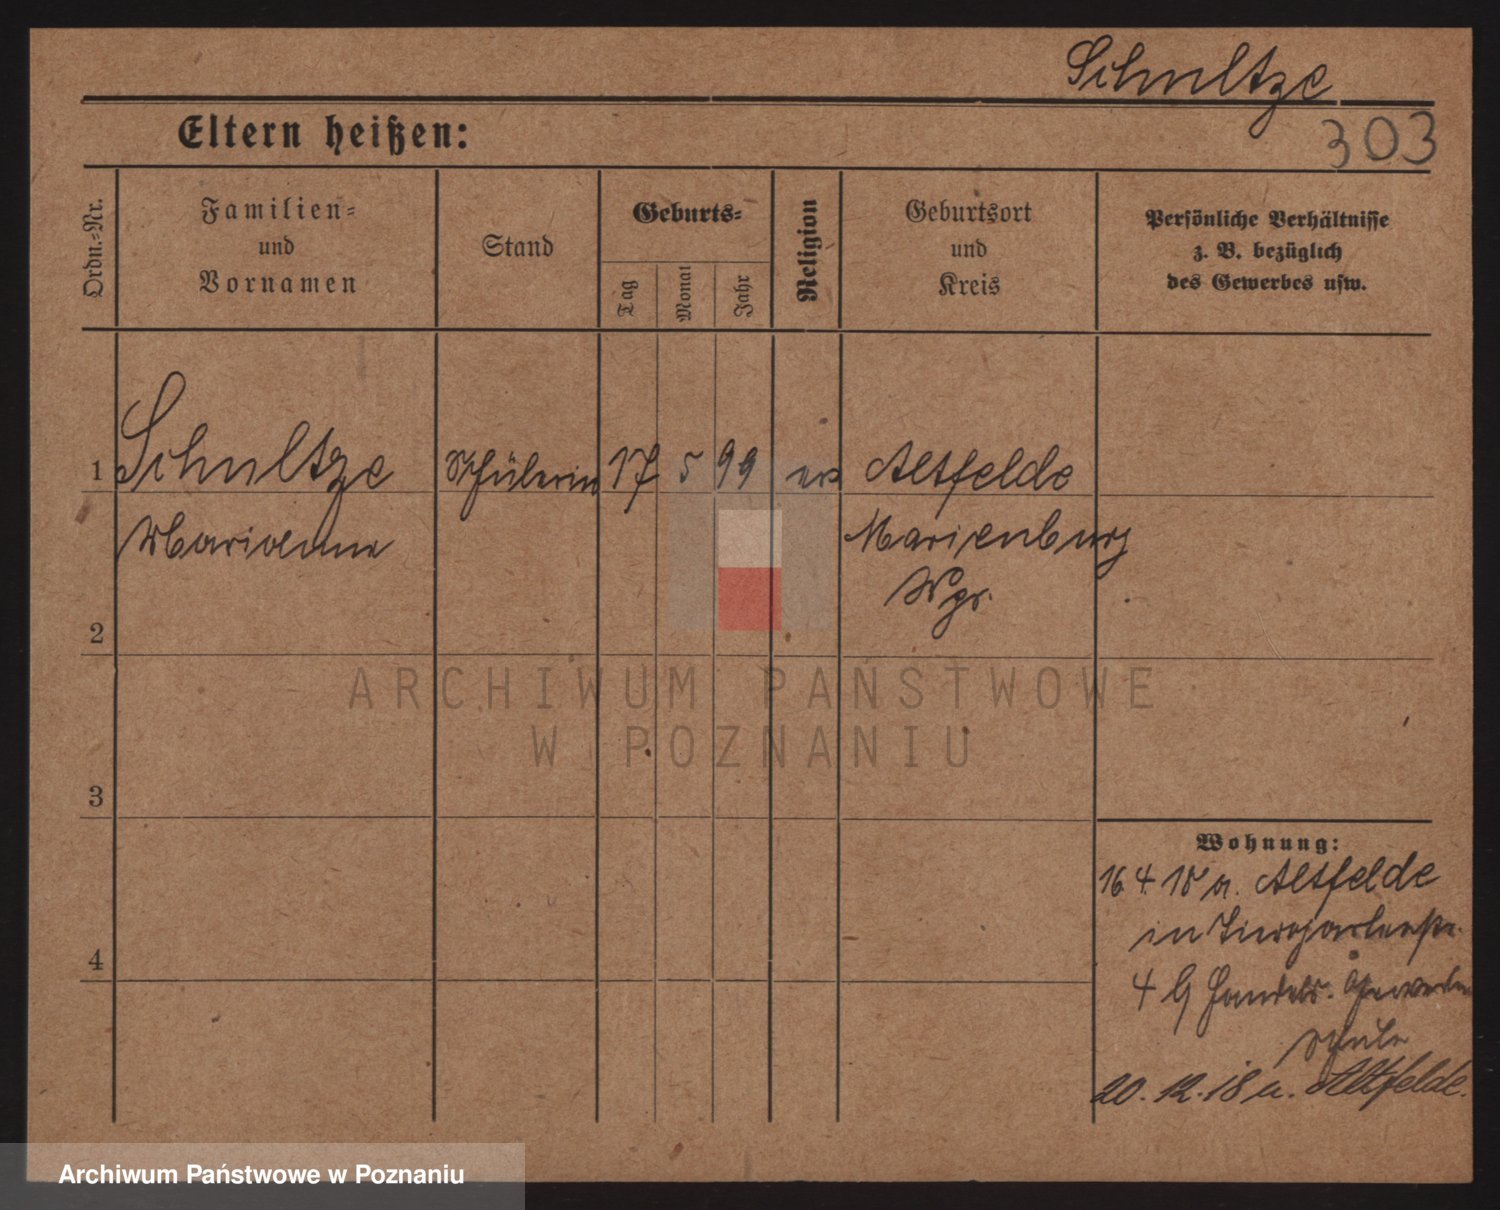 Schultze
Eltern heißen:
303
Ordn.-Nr.
Familien-
und
Vornamen
Stand
Geburts-
Tag
Monat
Jahr
Religion
Geburtsort
und
Kreis
Persönliche Verhältnisse
z. B. bezüglich
des Gewerbes usw.
1 Schultze Schülerin 17 5 99 ev Altfelde
Marianne Marienburg
Wpr.
2
3
4
Wohnung:
16 4 18 a. Altfelde
in Tiergartenstr.
4 G Handels. Gewerbe
schule
20. 12. 18 n. Altfelde.
ARCHIWUM PAŃSTWOWE
W POZNANIU
Archiwum Państwowe w Poznaniu